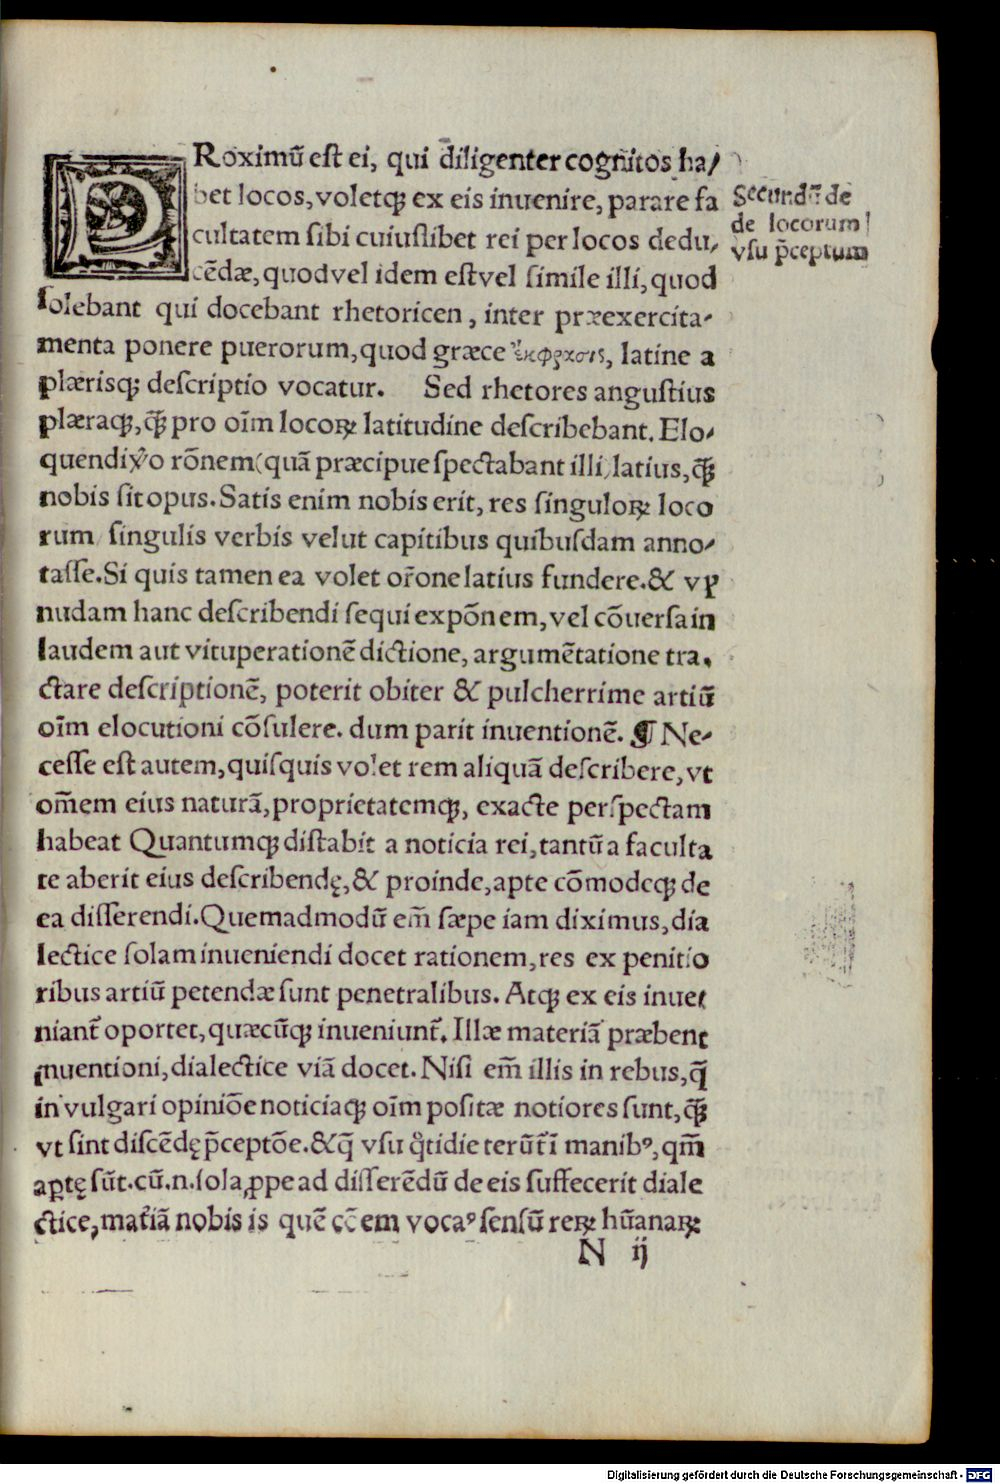 PRoximū est ei, qui diligenter cognitos ha/
bet locos, voletq; ex eis inuenire, parare fa
cultatem sibi cuiuslibet rei per locos dedu,
cēdæ, quod vel idem est vel simile illi, quod
solebant qui docebant rhetoricen, inter præexercita-
menta ponere puerorum, quod græce ἔκφρασις, latine a
plærisq; descriptio vocatur. Sed rhetores angustius
plæraq;, q̄ꝫ pro oīm locoꝝ latitudine describebant. Elo-
quendi ṽo rōnem (quā præcipue spectabant illi) latius, q̄ꝫ
nobis sit opus. Satis enim nobis erit, res singuloꝝ loco
rum/ singulis verbis velut capitibus quibusdam anno-
tasse. Si quis tamen ea volet or̄one latius fundere. & vꝑ
nudam hanc describendi sequi expōnem, vel cōuersa in
laudem aut vituperationē dictione, argumētatione tra,
ctare descriptionē, poterit obiter & pulcherrime artiū
oīm elocutioni cōsulere. dum parit inuentionē. ¶ Ne-
cesse est autem, quisquis volet rem aliquā describere, vt
om̄em eius naturā, proprietatemq;, exacte perspectam
habeat Quantumq; distabit a noticia rei, tantū a faculta
te aberit eius describendę, & proinde, apte cōmodeq; de
ea disserendi. Quemadmodū em̄ sæpe iam diximus, dia
lectice solam inueniendi docet rationem, res ex penitio
ribus artiū petendæ sunt penetralibus. Atq; ex eis inue
niant̄ oportet, quæcūq; inueniunt̄. Illæ materiā præbent
inuentioni, dialectice viā docet. Nisi em̄ illis in rebus, q̄
in vulgari opiniōe noticiaq; oīm positæ notiores sunt, q̄ꝫ
vt sint discēdę p̄ceptōe. & q̄ vsu q̊tidie terūt̄ ī manibꝰ, qm̄
aptę sūt. cū .n. sola ꝓpe ad disserēdū de eis suffecerit diale
ctice, mat̄iā nobis is quē cc̄em vocaꝰ sensū reꝝ hūanaꝝ
N ij
Secundū de
de locorum
vsu p̄ceptum
Digitalisierung gefördert durch die Deutsche Forschungsgemeinschaft - DFG